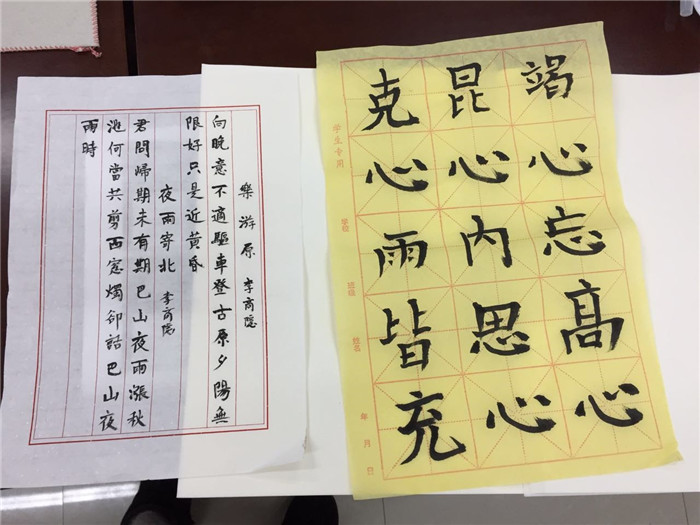 樂游原 李商隱
向晚意不適驅車登古原夕陽無
限好只是近黄昏
夜雨寄北 李商隱
君問歸期未有期巴山夜雨漲秋
池何當共剪西窓燭卻話巴山夜
雨時
竭心忘高心
昆心内思心
克心雨皆充
学生专用 学校 班级 姓名 年 月 日